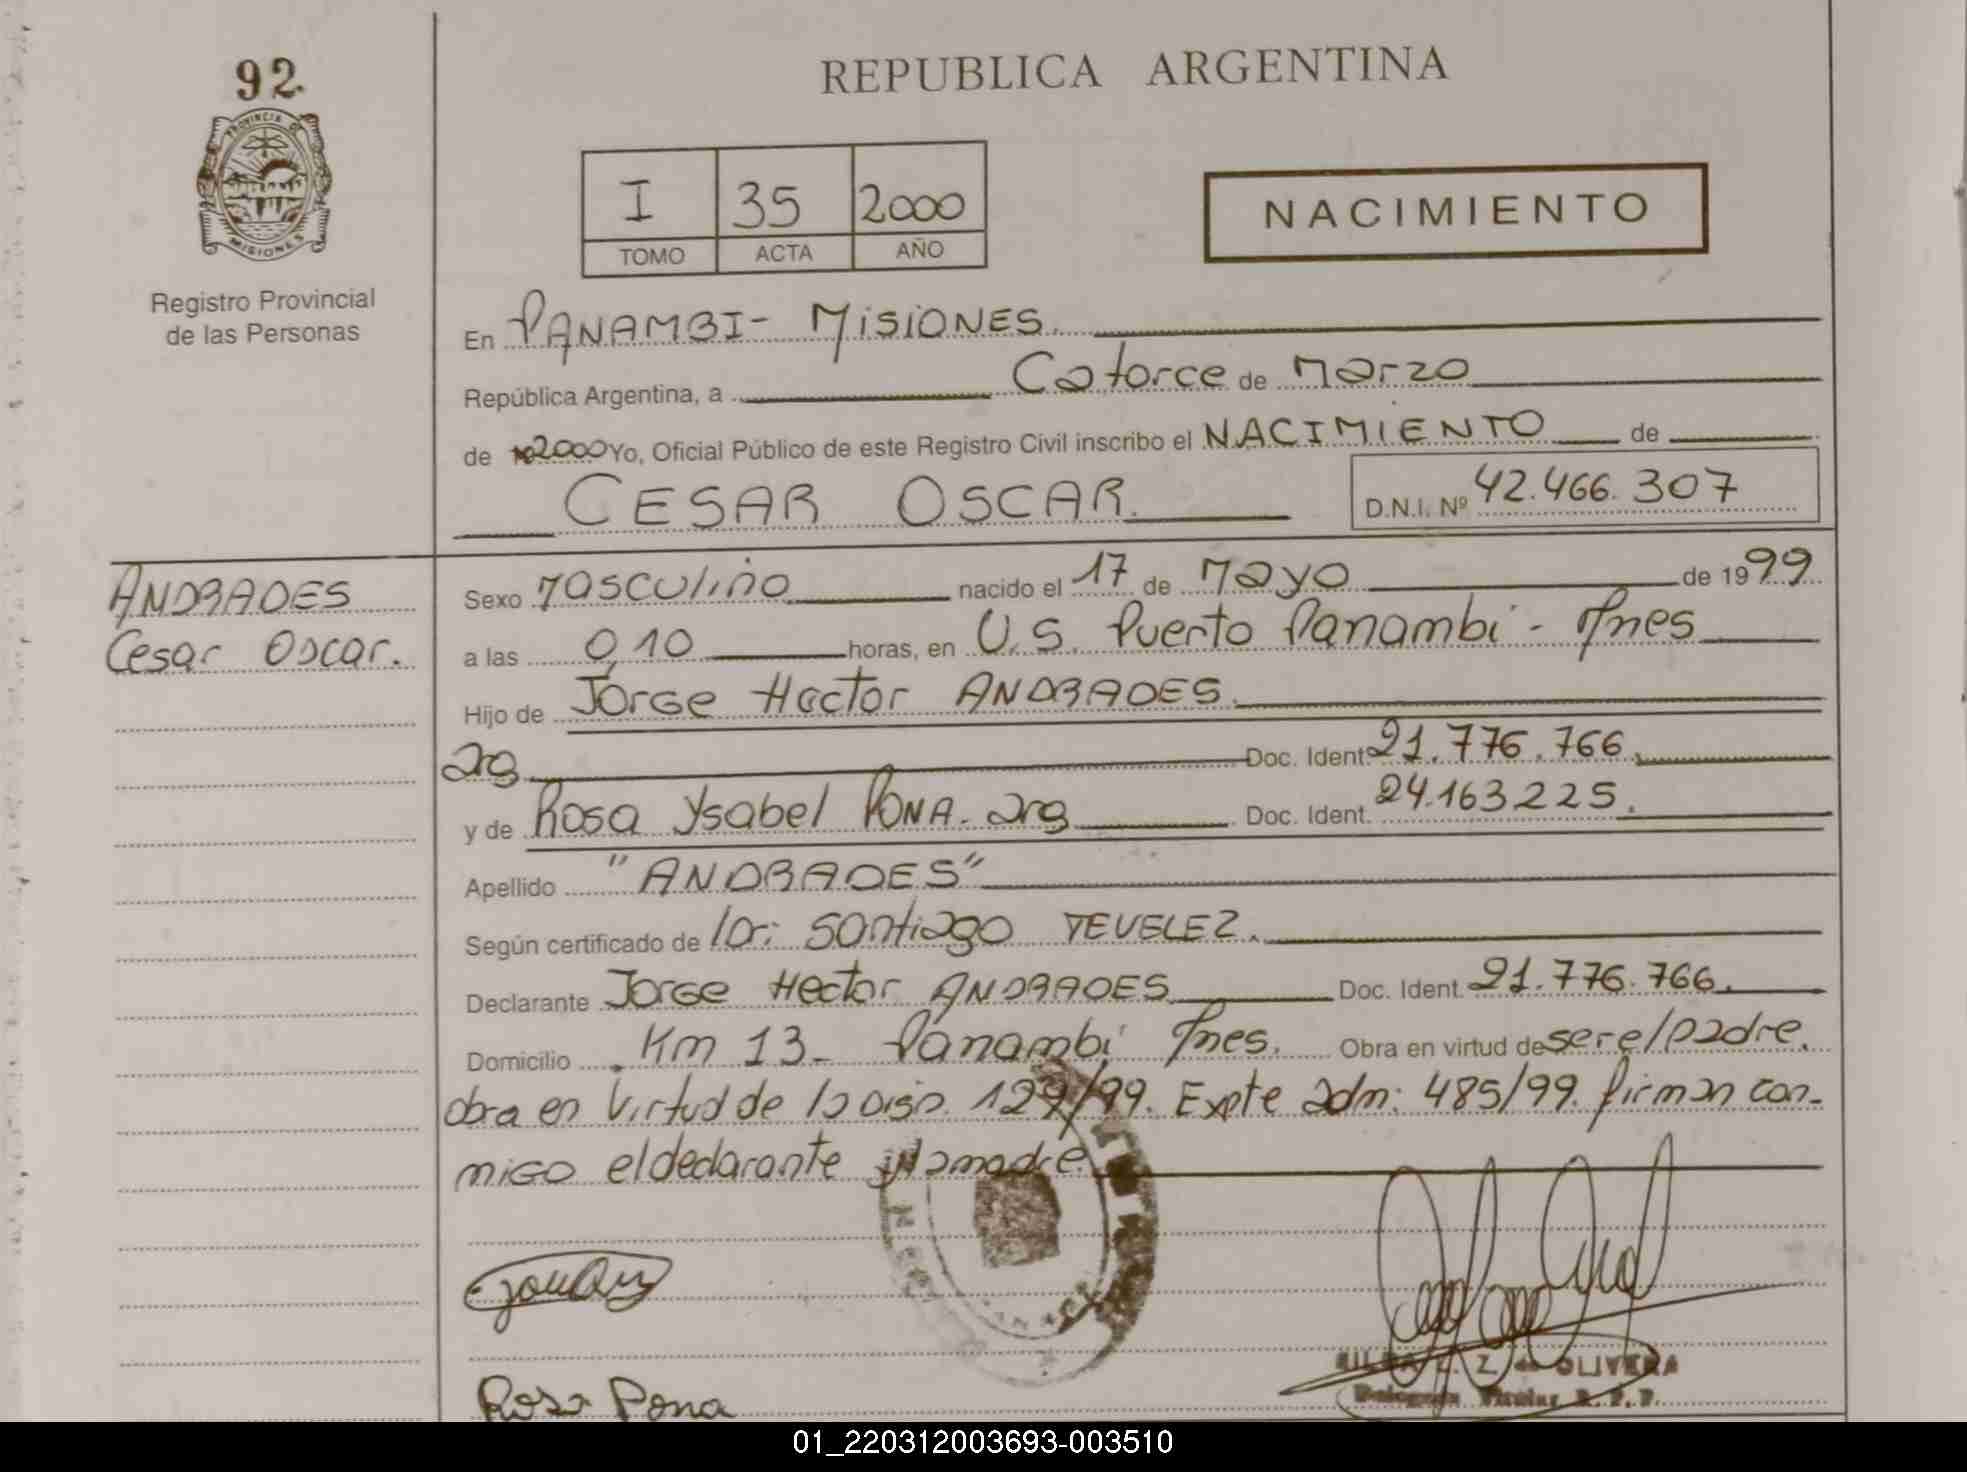 92
REPUBLICA ARGENTINA
PROVINCIA DE
MISIONES
Registro Provincial
de las Personas
I 35 2000
TOMO ACTA AÑO
NACIMIENTO
En PANAMBI - MISIONES.
República Argentina, a Catorce de Marzo
de 2000 Yo, Oficial Público de este Registro Civil inscribo el NACIMIENTO de
CESAR OSCAR.
D.N.I. Nº 42.466.307
ANDRADES
Cesar Oscar.
Sexo Masculino nacido el 17 de Mayo de 1999
a las 0,10 horas, en U.S. Puerto Panambi - Mnes
Hijo de Jorge Hector ANDRADES.
arg Doc. Ident. 21.776.766.
y de Rosa Ysabel PONA. arg Doc. Ident. 24.163.225.
Apellido "ANDRADES"
Según certificado de Santiago TEVELEZ.
Declarante Jorge Hector ANDRADES Doc. Ident. 21.776.766.
Domicilio Km 13 - Panambi Mnes. Obra en virtud de ser el padre.
obra en Virtud de la Disp. 129/99. Expte adm: 485/99. firman con-
migo el declarante y la madre.
Rosa Pona
Z. de OLIVERA
Titular R. P. P.
01_220312003693-003510